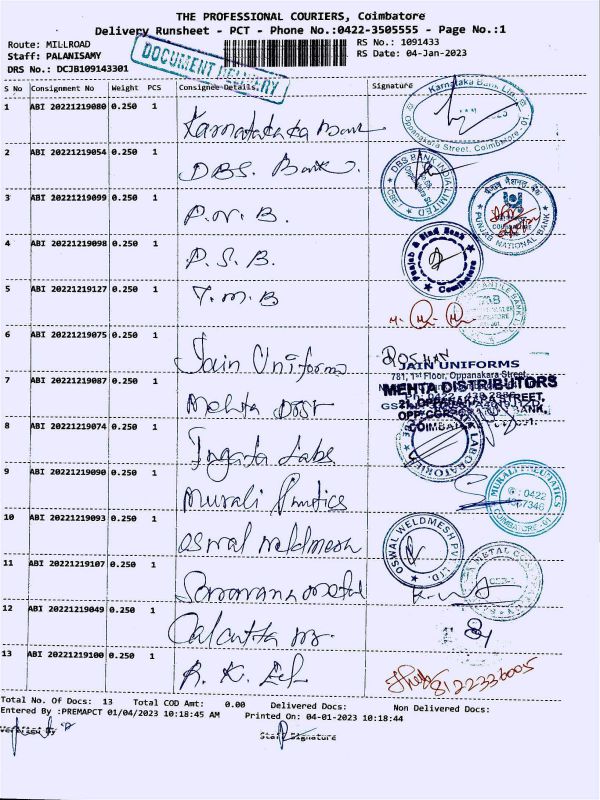 THE PROFESSIONAL COURIERS, Coimbatore
Delivery Runsheet - PCT - Phone No.:0422-3505555 - Page No.:1
Route: MILLROAD
RS No.: 1091433
Staff: PALANISAMY
RS Date: 04-Jan-2023
DRS No.: DCJB109143301
DOCUMENT DELIVERY
S No Consignment No Weight PCS Consignee Details Signature
1 ABI 20221219080 0.250 1 Karnataka Bank
Karnataka Bank Ltd.
Oppanakara Street, Coimbatore - 01
2 ABI 20221219054 0.250 1 DBS. Bank.
DBS BANK INDIA LIMITED
3 ABI 20221219099 0.250 1 P.N.B.
पंजाब नैशनल बैंक
PUNJAB NATIONAL BANK
4 ABI 20221219098 0.250 1 P.S.B.
Punjab & Sind Bank
Coimbatore
5 ABI 20221219127 0.250 1 T.M.B
6 ABI 20221219075 0.250 1 Jain Uniforms
ROSHAN
JAIN UNIFORMS
781, 1st Floor, Oppanakara Street,
7 ABI 20221219087 0.250 1 Mehta Dist
MEHTA DISTRIBUTORS
21, OPPANAKARA STREET,
8 ABI 20221219074 0.250 1 Labs
LABORATORIES
9 ABI 20221219090 0.250 1 Murali
: 0422
10 ABI 20221219093 0.250 1 oswal weldmesh
OSWAL WELDMESH PVT. LTD.
11 ABI 20221219107 0.250 1 Saravana metal
METAL
12 ABI 20221219049 0.250 1 Calcutta
13 ABI 20221219100 0.250 1 R. K.
8122336005
Total No. Of Docs: 13 Total COD Amt: 0.00 Delivered Docs: Non Delivered Docs:
Entered By :PREMAPCT 01/04/2023 10:18:45 AM Printed On: 04-01-2023 10:18:44
Verified By Staff Signature